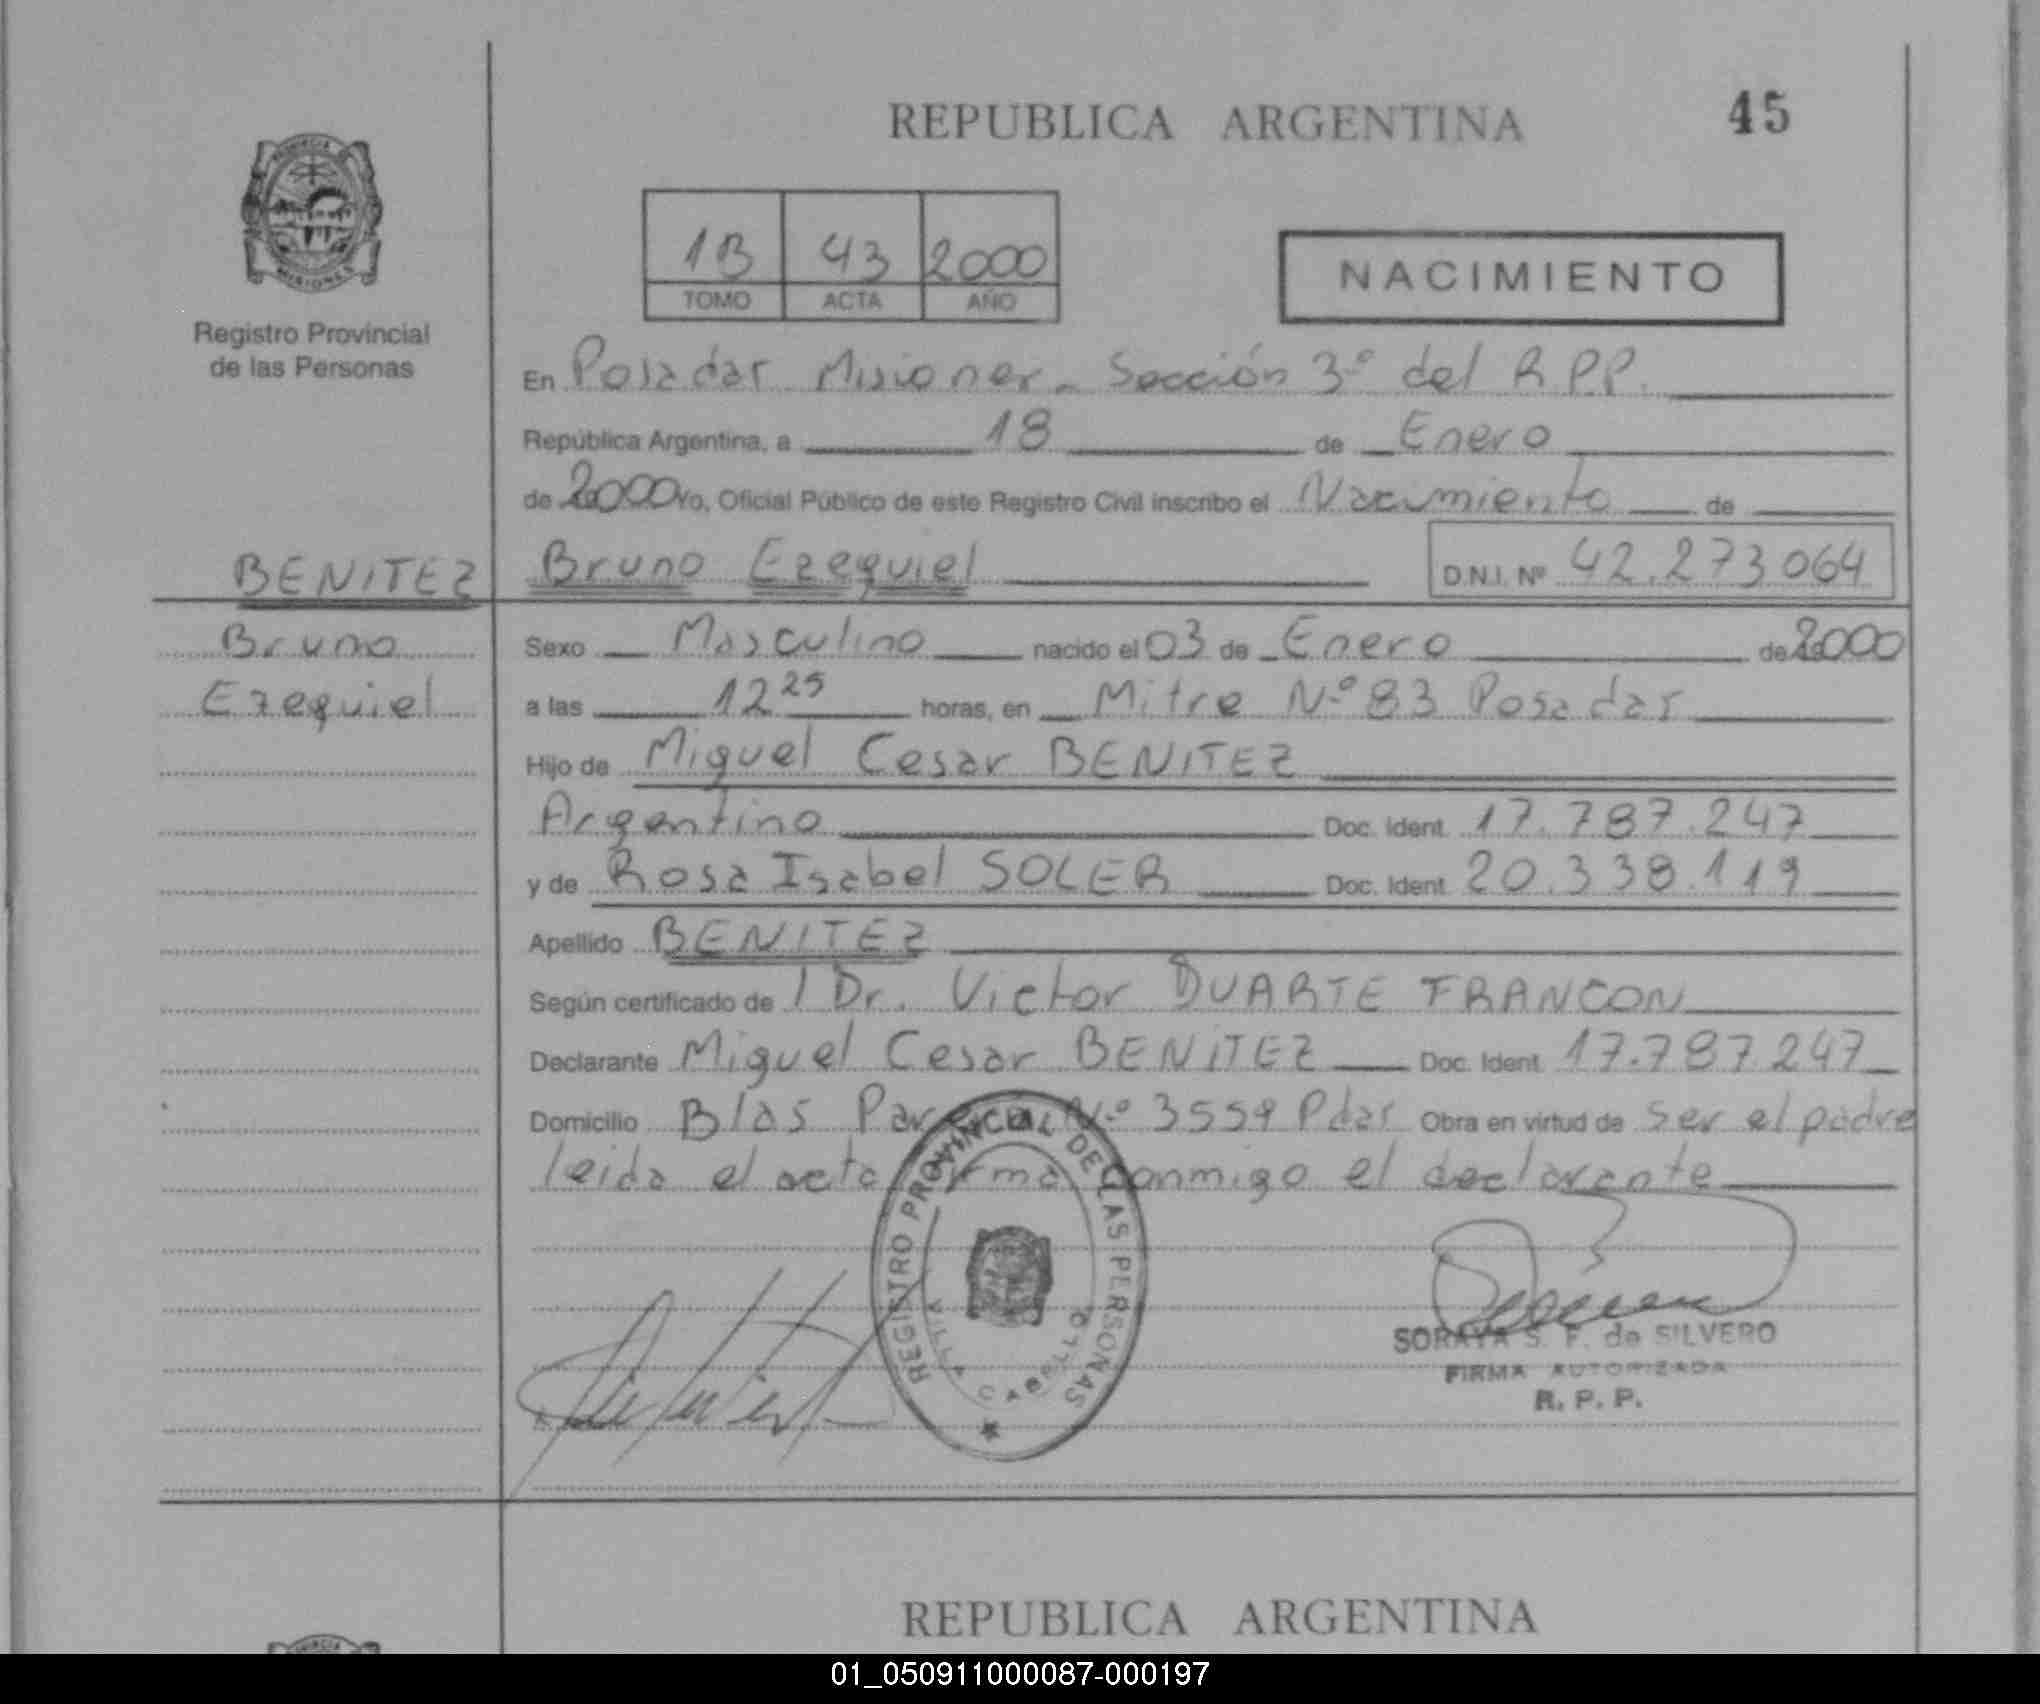 REPUBLICA ARGENTINA 45
PROVINCIA DE MISIONES
Registro Provincial
de las Personas
1B 43 2000
TOMO ACTA AÑO
NACIMIENTO
En Posadas Misiones - Sección 3º del R.P.P.
República Argentina, a 18 de Enero
de 2000 Yo, Oficial Público de este Registro Civil inscribo el Nacimiento de
BENITEZ Bruno Ezequiel D.N.I. Nº 42.273.064
Bruno Sexo Masculino nacido el 03 de Enero de 2000
Ezequiel a las 12 25 horas, en Mitre Nº 83 Posadas
Hijo de Miguel Cesar BENITEZ
Argentino Doc. Ident. 17.787.247
y de Rosa Isabel SOLER Doc. Ident. 20.338.119
Apellido BENITEZ
Según certificado de l Dr. Victor DUARTE FRANCON
Declarante Miguel Cesar BENITEZ Doc. Ident. 17.787.247
Domicilio Blas Nº 3559 Pdas Obra en virtud de ser el padre
leida el acta firma conmigo el declarante
REGISTRO PROVINCIAL DE LAS PERSONAS
VILLA CABELLO
SORAYA S. F. de SILVERO
FIRMA AUTORIZADA
R. P. P.
REPUBLICA ARGENTINA
01_050911000087-000197